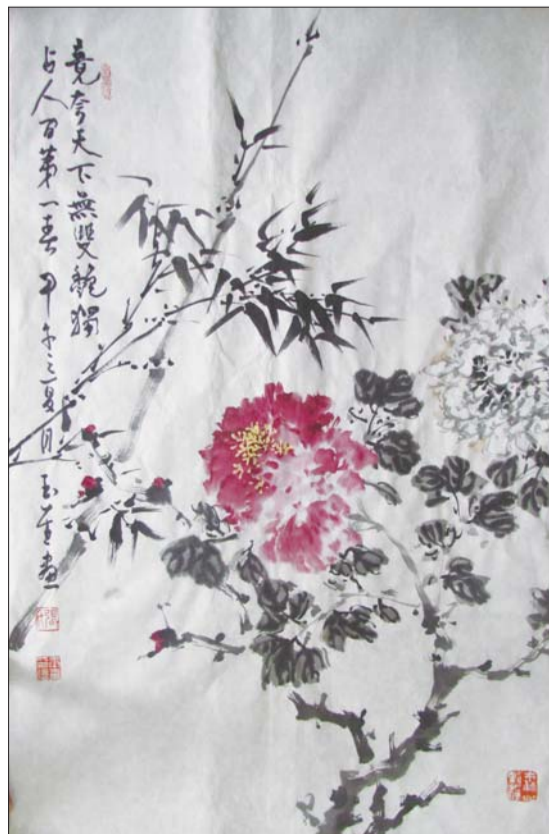 竟夸天下無雙艷獨
占人间第一春 甲午之夏月 玉 畫